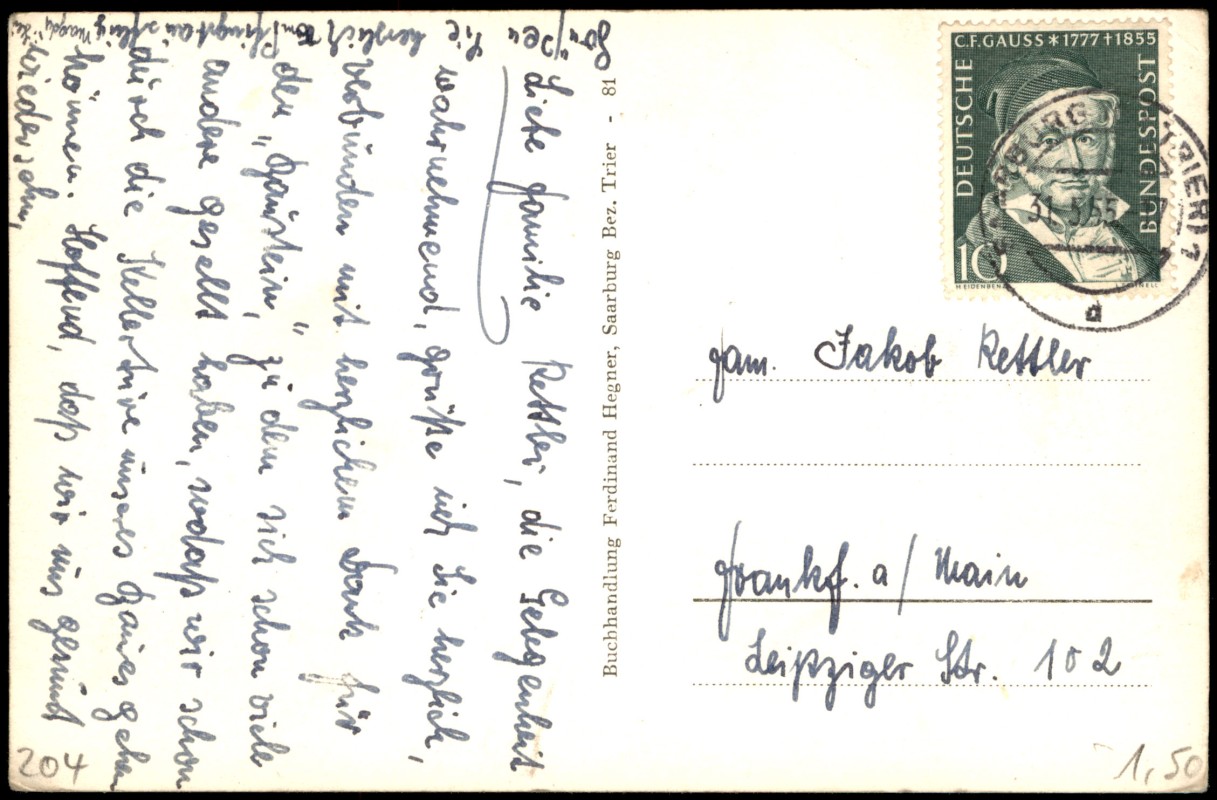 Liebe Familie Kettler, die Gelegenheit
wahrnehmend, grüße ich Sie herzlich,
verbunden mit herzlichem Dank für
den „Baustein," zu dem sich schon viele
andere gesellt haben, sodaß wir schon
durch die Kellertüre unseres Hauses gehen
können. Hoffend, daß wir uns gesund
wiedersehn,
Sie herzlich
vom Pfingstausflug
Buchhandlung Ferdinand Hegner, Saarburg Bez. Trier - 81
C.F.GAUSS * 1777 † 1855
DEUTSCHE
BUNDESPOST
10
SAARBURG (BZ TRIER) 1
31.5.55
a
Fam. Jakob Kettler
Frankf. a/Main
Leipziger Str. 102
204
1,50